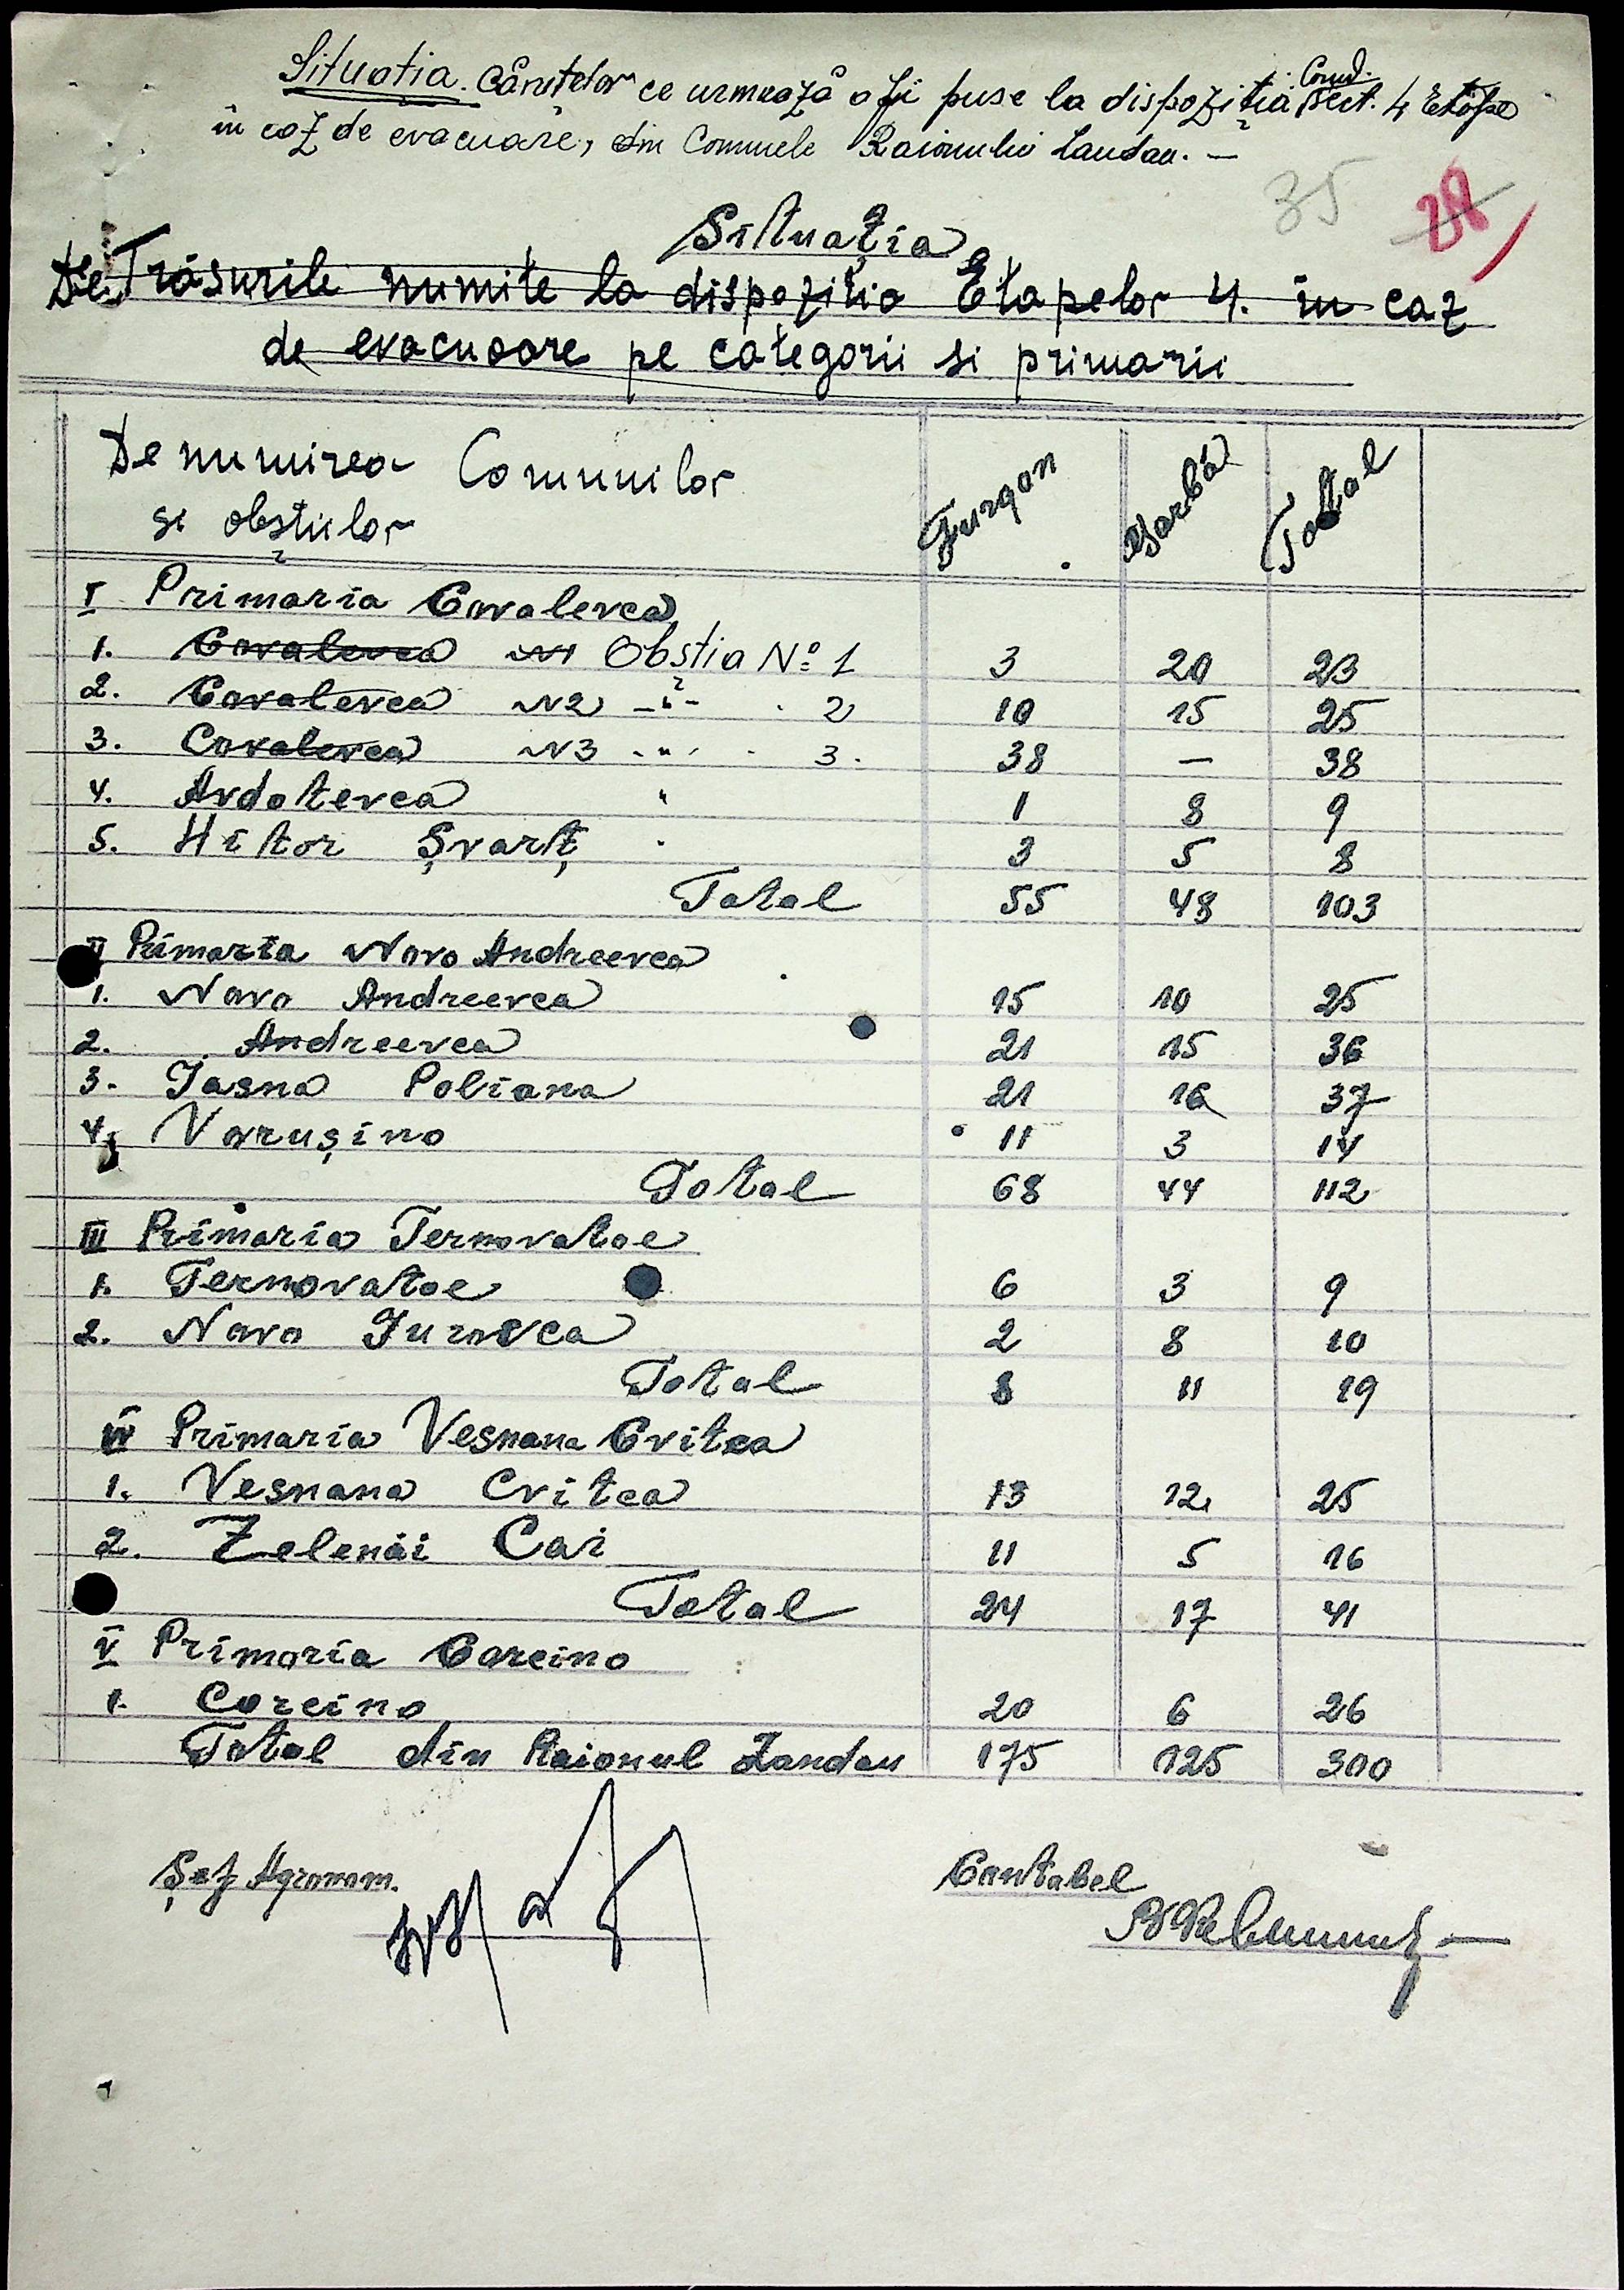 Situatia Cărutelor ce urmează a fi puse la dispoziția Comd. Sect. 4 Etape
în caz de evacuare, din Comunele Raionului Landau. —
35 28
Situația
De Trăsurile numite la dispoziția Etapelor 4. în caz
de evacuoare pe categorii si primarii
Denumirea Comunilor si obștiilor Furgon Harba Total
I Primaria Covalevca
1. Covalevca N1 Obștia Nº 1 3 20 23
2. Covalevca N2 -"- 2 10 15 25
3. Covalevca N3 -"- 3. 38 — 38
4. Avdotevca " 1 8 9
5. Hitor Șvarț 3 5 8
Total 55 48 103
II Primaria Novo Andreevca
1. Novo Andreevca 15 10 25
2. Andreevca 21 15 36
3. Iasna Poliana 21 16 37
4. Varușino 11 3 14
Total 68 44 112
III Primaria Ternovatoe
1. Ternovatoe 6 3 9
2. Novo Iurovca 2 8 10
Total 8 11 19
IV Primaria Vesnana Cvitca
1. Vesnana Cvitca 13 12 25
2. Zelenâi Cai 11 5 16
Total 24 17 41
V Primaria Corcino
1. Corcino 20 6 26
Total din Raionul Landau 175 125 300
Șef Agronom. Contabel